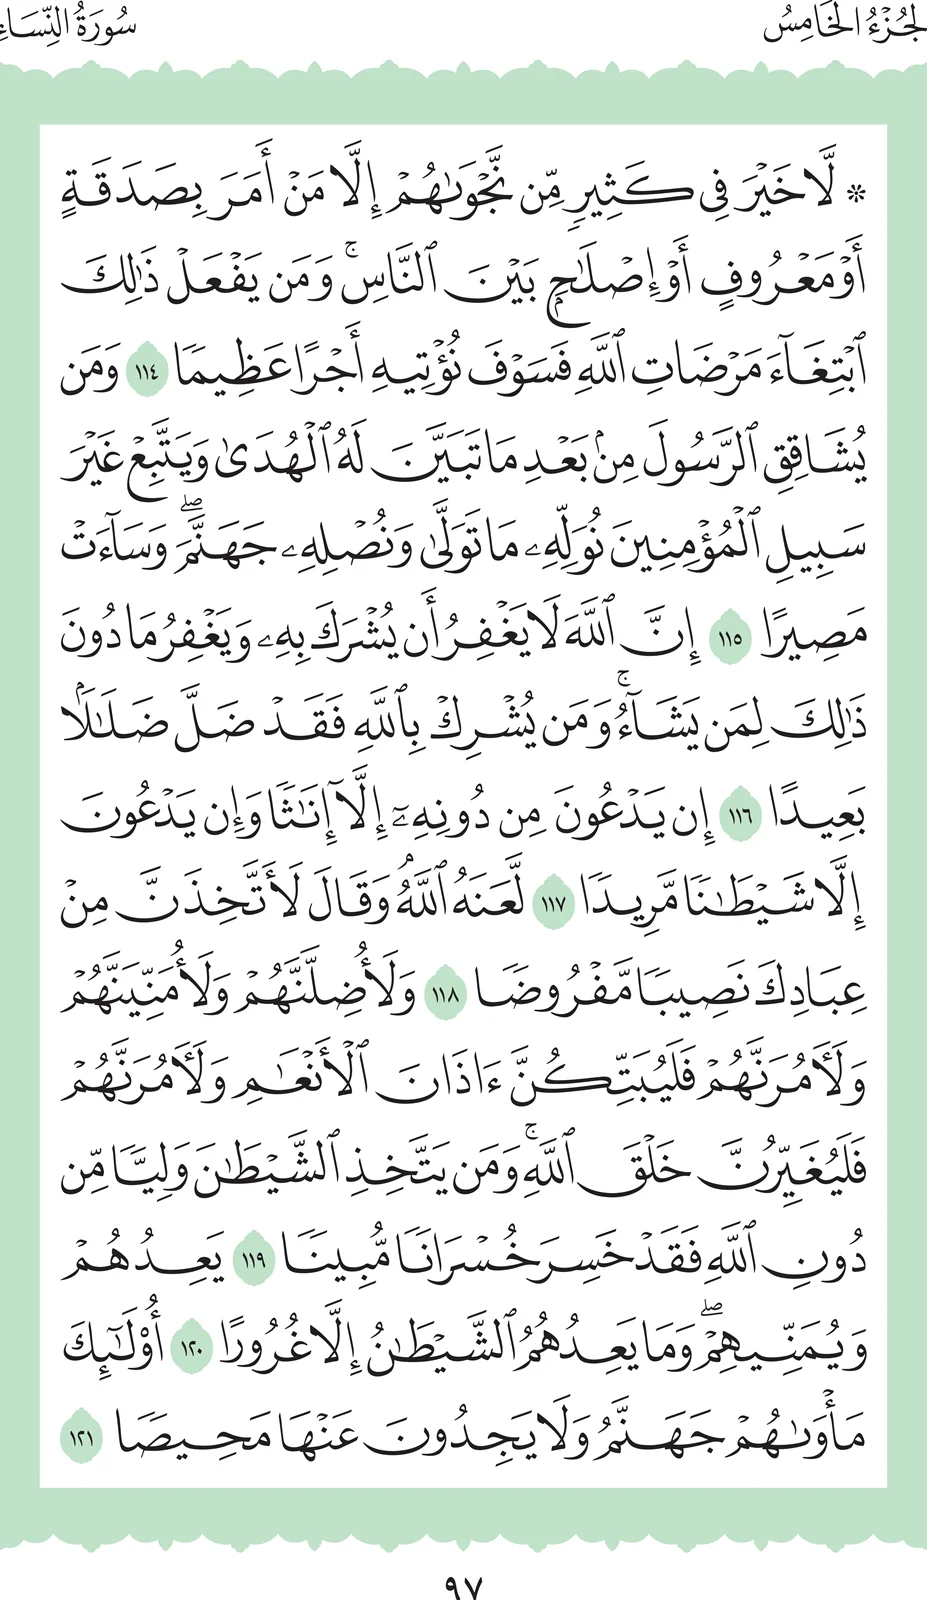 الجُزْءُ الخَامِسُ
سُورَةُ النِّسَاءِ
* لَّا خَيْرَ فِي كَثِيرٍ مِّن نَّجْوَىٰهُمْ إِلَّا مَنْ أَمَرَ بِصَدَقَةٍ
أَوْ مَعْرُوفٍ أَوْ إِصْلَـٰحٍۭ بَيْنَ ٱلنَّاسِۚ وَمَن يَفْعَلْ ذَٰلِكَ
ٱبْتِغَآءَ مَرْضَاتِ ٱللَّهِ فَسَوْفَ نُؤْتِيهِ أَجْرًا عَظِيمًا ١١٤ وَمَن
يُشَاقِقِ ٱلرَّسُولَ مِنۢ بَعْدِ مَا تَبَيَّنَ لَهُ ٱلْهُدَىٰ وَيَتَّبِعْ غَيْرَ
سَبِيلِ ٱلْمُؤْمِنِينَ نُوَلِّهِۦ مَا تَوَلَّىٰ وَنُصْلِهِۦ جَهَنَّمَۖ وَسَآءَتْ
مَصِيرًا ١١٥ إِنَّ ٱللَّهَ لَا يَغْفِرُ أَن يُشْرَكَ بِهِۦ وَيَغْفِرُ مَا دُونَ
ذَٰلِكَ لِمَن يَشَآءُۚ وَمَن يُشْرِكْ بِٱللَّهِ فَقَدْ ضَلَّ ضَلَـٰلًۢا
بَعِيدًا ١١٦ إِن يَدْعُونَ مِن دُونِهِۦٓ إِلَّآ إِنَـٰثًا وَإِن يَدْعُونَ
إِلَّا شَيْطَـٰنًا مَّرِيدًا ١١٧ لَّعَنَهُ ٱللَّهُۘ وَقَالَ لَأَتَّخِذَنَّ مِنْ
عِبَادِكَ نَصِيبًا مَّفْرُوضًا ١١٨ وَلَأُضِلَّنَّهُمْ وَلَأُمَنِّيَنَّهُمْ
وَلَـَٔامُرَنَّهُمْ فَلَيُبَتِّكُنَّ ءَاذَانَ ٱلْأَنْعَـٰمِ وَلَـَٔامُرَنَّهُمْ
فَلَيُغَيِّرُنَّ خَلْقَ ٱللَّهِۚ وَمَن يَتَّخِذِ ٱلشَّيْطَـٰنَ وَلِيًّا مِّن
دُونِ ٱللَّهِ فَقَدْ خَسِرَ خُسْرَانًا مُّبِينًا ١١٩ يَعِدُهُمْ
وَيُمَنِّيهِمْۖ وَمَا يَعِدُهُمُ ٱلشَّيْطَـٰنُ إِلَّا غُرُورًا ١٢٠ أُو۟لَـٰٓئِكَ
مَأْوَىٰهُمْ جَهَنَّمُ وَلَا يَجِدُونَ عَنْهَا مَحِيصًا ١٢١
٩٧